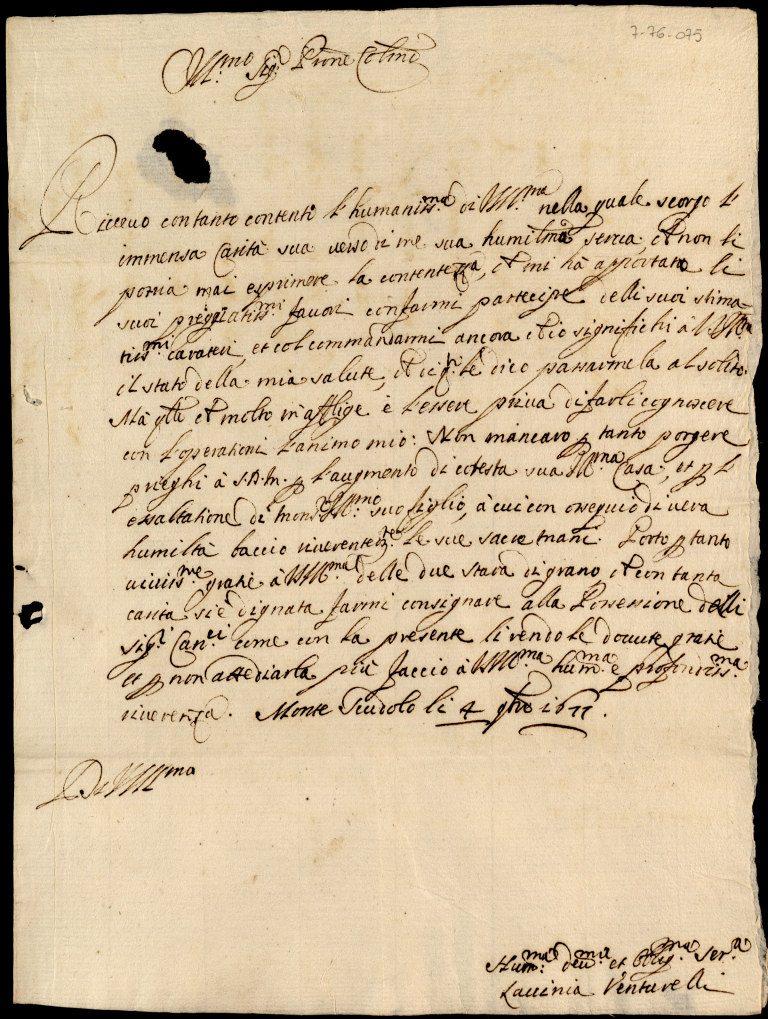 7-76-075
Ill.mo Sig.r Prone Col.mo
Ricevo con tanto contento l'humaniss.ma di V.S.Ill.ma nella quale scorgo l'
immensa Carità sua verso di me sua humil.ma serva, et non li
potria mai esprimere la contentezza, et mi hà apportato li
suoi pregiatiss.mi favori con farmi partecipe delli suoi stima=
tiss.mi caratteri, et col commandarmi ancora ch'io significhi à V.S.Ill.ma
il stato della mia salute, et io li dico passarmela al solito.
Mà q.llo ch molto m'afflige è l'essere priva di farli cognoscere
con l'operationi l'animo mio: Non mancarò p tanto porgere
prieghi à S.D.M. p l'augmento di cotesta sua Ill.ma Casa, et p l'
essaltatione di Mons.r Ill.mo suo figlio, à cui con ossequio di vera
humiltà baccio riverentem.te le sue sacre mani. Porto p tanto
viviss.me gratie à V.S.Ill.ma delle due stara di grano, ch con tanta
carità si è dignata farmi consignare alla Possessione delli
Sig.ri Can.ci come con la presente li rendo le dovute gratie
et p non attediarla più faccio à V.S.Ill.ma hum.ma e profondiss.ma
riverenza. Monte Scudolo li 4 9bre 1677.
Di V.S.Ill.ma
Hum.ma dev.ma et Oblig.ma Ser.a
Lavinia Venturelli